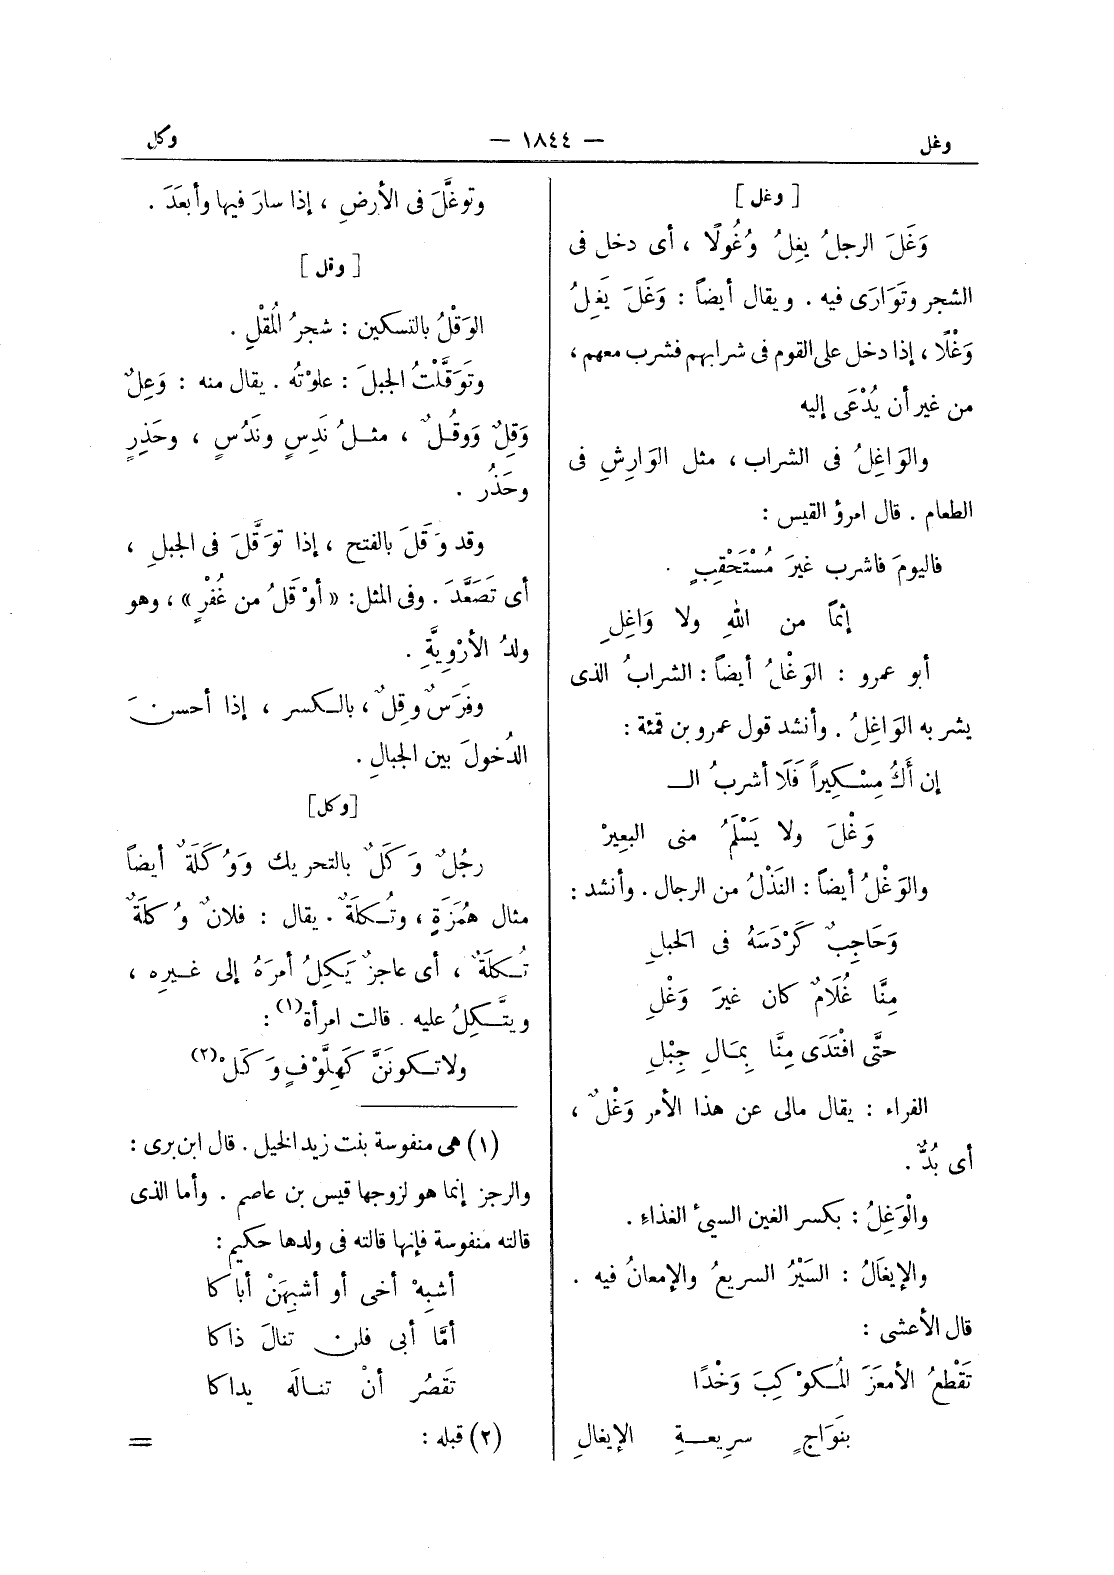 وغل — ١٨٤٤ — وكل
[ وغل ]
وَغَلَ الرجلُ يغِلُ وُغُولًا ، أى دخل فى
الشجر وتَوَارَى فيه . ويقال أيضاً : وَغَلَ يَغِلُ
وَغْلًا ، إذا دخل على القوم فى شرابهم فشرب معهم ،
من غير أن يُدْعَى إليه
والوَاغِلُ فى الشراب ، مثل الوَارِشِ فى
الطعام . قال امرؤ القيس :
فاليومَ فاشرب غيرَ مُسْتَحْقِبٍ .
إثمًا من اللهِ ولا وَاغِلِ
أبو عمرو : الوَغْلُ أيضاً : الشرابُ الذى
يشربه الوَاغِلُ . وأنشد قول عمرو بن قمئة :
إن أَكُ مِسْكِيراً فَلَا أشربُ الـ
وَغْلَ ولا يَسْلَمُ منى البعيرْ
والوَغْلُ أيضاً : النَذْلُ من الرجال . وأنشد :
وَحَاجِبٌ كَرْدَسَهُ فى الحبلِ
مِنَّا غُلَامٌ كان غيرَ وَغْلِ
حتَّى افْتَدَى مِنَّا بِمَالِ جِبْلِ
الفراء : يقال مالى عن هذا الأمر وَغْلٌ ،
أى بُدٌّ .
والْوَغِلُ : بكسر الغين السيئ الغذاءِ .
والإيغَالُ : السَيْرُ السريعُ والإمعانُ فيه .
قال الأعشى :
تَقْطعُ الأمعَزَ المُكَوْكِبَ وَخْدًا
بنَوَاجٍ سريعةِ الإيغالِ
وتوغَّلَ فى الأرضِ ، إذا سارَ فيها وأبعَدَ .
[ وقل ]
الوَقْلُ بالتسكين : شجرُ المُقْلِ .
وتَوَقَّلْتُ الجبلَ : علوْتُه . يقال منه : وَعِلٌ
وَقِلٌ ووقُلٌ ، مثلُ نَدِسٍ وندُسٍ ، وحَذِرٍ
وحَذُر .
وقد وَقَلَ بالفتح ، إذا توَقَّلَ فى الجبلِ ،
أى تَصَعَّدَ . وفى المثل: «أوْقَلُ من غُفْرٍ» ، وهو
ولدُ الأرْوِيَّةِ .
وفَرَسٌ وقِلٌ ، بالكسر ، إذا أحسنَ
الدُخولَ بين الجبالِ .
[ وكل ]
رجُلٌ وَكَلٌ بالتحريك وَوُكَلَةٌ أيضاً
مثال هُمَزَةٍ ، وتُكلَةٌ . يقال : فلانٌ وُكلَةٌ
تُكلَةٌ ، أى عاجزٌ يَكِلُ أمرَهُ إلى غيرِه ،
ويتَّكِلُ عليه . قالت امرأة(١) :
ولاتكونَنَّ كَهِلَّوْفٍ وَكَلْ(٢)
(١) هى منفوسة بنت زيد الخيل . قال ابن برى :
والرجز إنما هو لزوجها قيس بن عاصم . وأما الذى
قالته منفوسة فإنها قالته فى ولدها حكيم :
أشبِهْ أخى أو أشبِهَنْ أباكا
أمَّا أبى فلن تنالَ ذاكا
تَقصُر أنْ تنالَه يداكا
(٢) قبله :
=